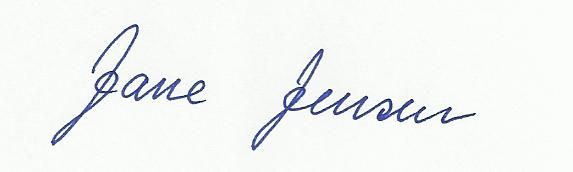 Jane Jensen